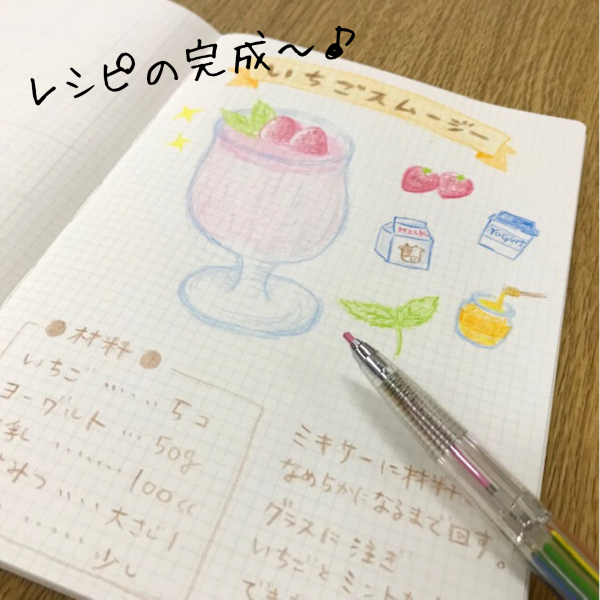 レシピの完成〜♪
いちごスムージー
MILK
Yogurt
材料
いちご ‥‥‥ 5コ
ヨーグルト ‥‥ 50g
乳 ‥‥‥‥ 100cc
みつ ‥‥ 大さじ1
‥‥‥ 少し
ミキサーに材料
なめらかになるまで回す。
グラスに注ぎ
いちごとミント